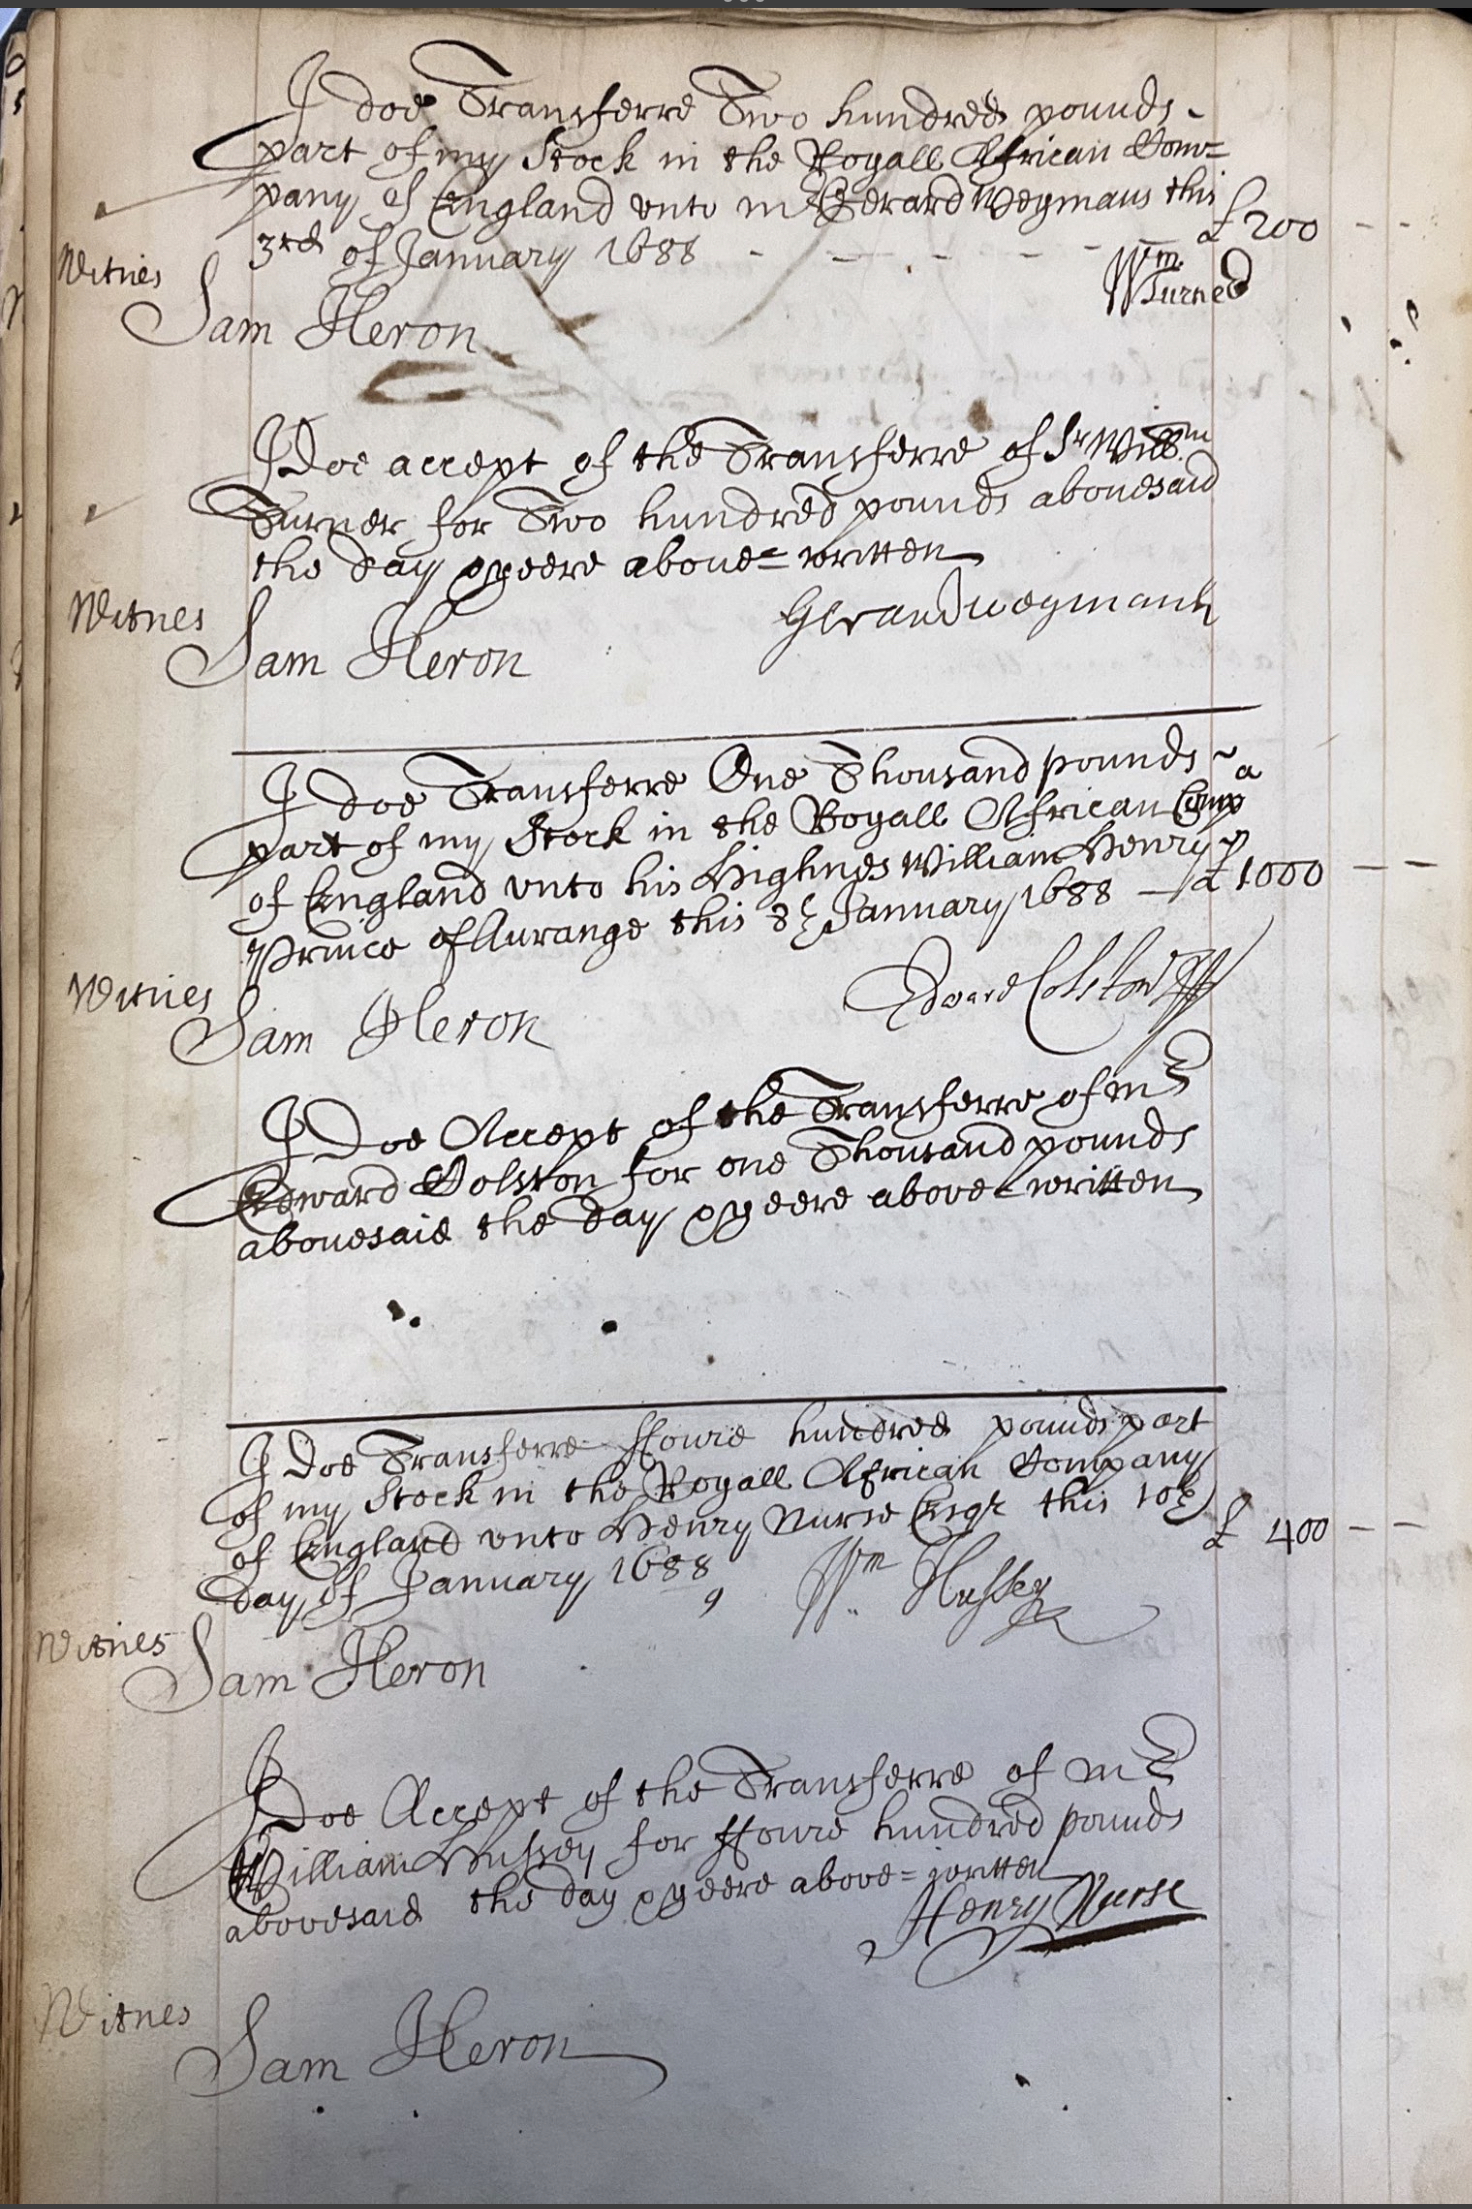 I doe Transferre Two hundred pounds
part of my Stock in the Royall African Com=
pany of England vnto mr Gerard Wegmans this
3rd of January 1688 - - - - - - - £ 200 - -
Witnes
Wm.
Turner
Sam Heron
I Doe accept of the Transferre of Sr Willm
Turner for Two hundred pounds abouesaid
the day & yeere aboue= written
Gerard wegmans
Witnes
Sam Heron
I doe Transferre One Thousand pounds
part of my Stock in the Royall African Comp a
of England vnto his Highnes William Henry
Prince of Aurange this 8th January 1688 — £ 1000 — —
Edward Colston
Witnes
Sam Heron
I Doe Accept of the Transferre of mr
Edward Colston for one Thousand pounds
abouesaid the day & yeere above= written
I Doe Transferre ffoure hundred pounds part
of my Stock in the Royall African Company
of England vnto Henry Nurse Esqr this 10th £ 400 — —
day of January 1688
Wm Hussey
Witnes
Sam Heron
I Doe Accept of the Transferre of mr
William Hussey for ffoure hundred pounds
abovesaid the day & yeere above= written
Henry Nurse
Witnes
Sam Heron